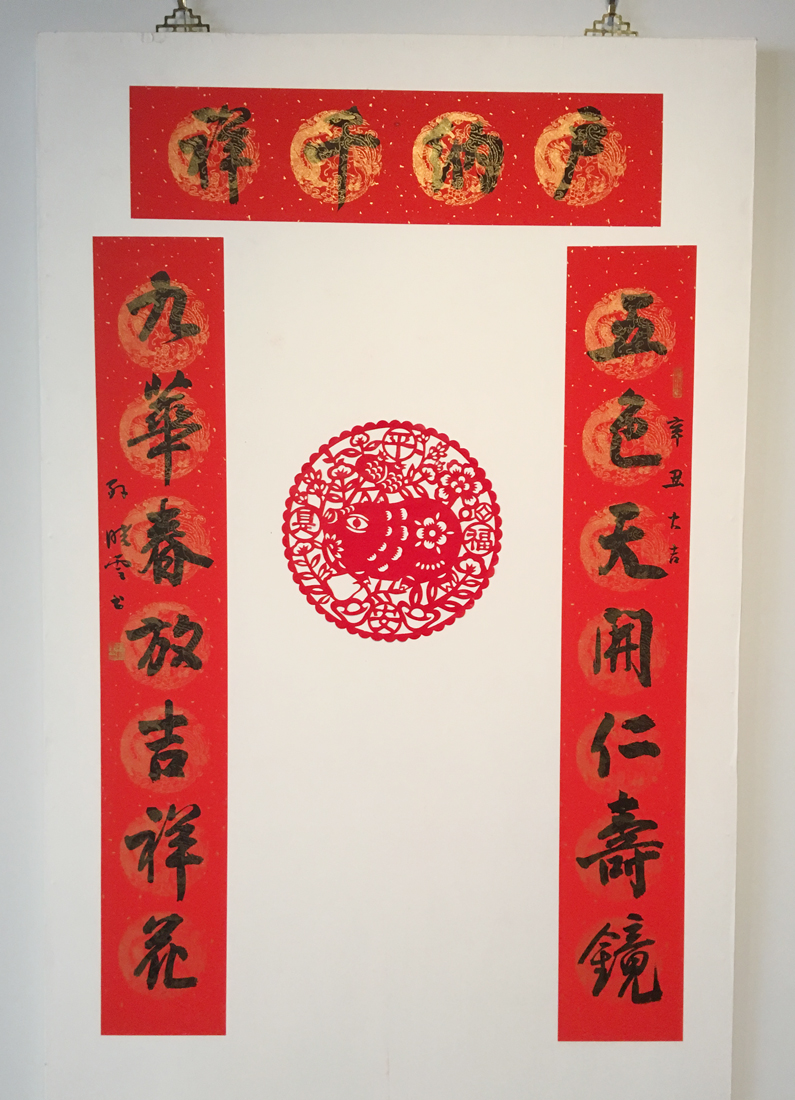 户纳千祥
五色天開仁壽鏡
辛丑大吉
九華春放吉祥花
孙晓雲书
平
安
福